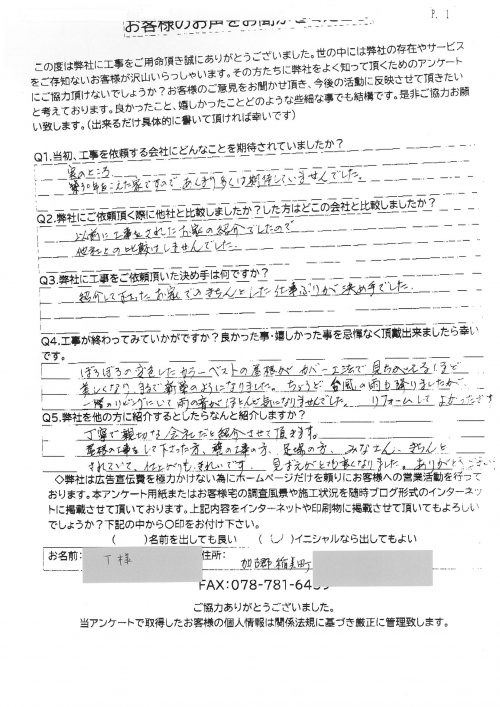 P. 1
お客様のお声をお聞かせください
この度は弊社に工事をご用命頂き誠にありがとうございました。世の中には弊社の存在やサービス
をご存知ないお客様が沢山いらっしゃいます。その方たちに弊社をよく知って頂くためのアンケート
にご協力頂けないでしょうか?お客様のご意見をお聞かせ頂き、今後の活動に反映させて頂きたい
と考えております。良かったこと、嬉しかったことどのような些細な事でも結構です。是非ご協力お願
い致します。(出来るだけ具体的に書いて頂ければ幸いです)
Q1.当初、工事を依頼する会社にどんなことを期待されていましたか?
実のところ
築30年をこえた家ですので あんまり多くは期待していませんでした。
Q2.弊社にご依頼頂く際に他社と比較しましたか?した方はどこの会社と比較しましたか?
以前に工事をされたお家の紹介でしたので
他社との比較はしませんでした。
Q3.弊社に工事をご依頼頂いた決め手は何ですか?
紹介して下さったお家でのきちんとした仕事ぶりが決め手でした。
Q4.工事が終わってみていかがですか?良かった事・嬉しかった事を忌憚なく頂戴出来ましたら幸い
です。
ぼろぼろの変色したカラーベストの屋根がカバー工法で見ちがえるほど
美しくなり、まるで新築のようになりました。ちょうど台風の雨も降りましたが、
一階のリビングにいて雨の音がほとんど気になりませんでした。 リフォームしてよかったです
Q5.弊社を他の方に紹介するとしたらなんと紹介しますか?
丁寧で親切な会社だと紹介させて頂きます。
屋根の工事をして下さった方、壁の工事の方、足場の方、みなさん、きちんと
されていて、仕上がりもきれいです。見ちがえりました。ありがとうござい
◇弊社は広告宣伝費を極力かけない為にホームページだけを頼りにお客様への営業活動を行って
おります。本アンケート用紙またはお客様宅の調査風景や施工状況を随時ブログ形式のインターネッ
トに掲載させて頂いております。上記内容をインターネットや印刷物に掲載させて頂いてもよろしい
でしょうか?下記の中から〇印をお付け下さい。
( )名前を出しても良い (〇)イニシャルなら出してもよい
お名前: T様 住所: 加古郡稲美町
FAX:078-781-6439
ご協力ありがとうございました。
当アンケートで取得したお客様の個人情報は関係法規に基づき厳正に管理致します。